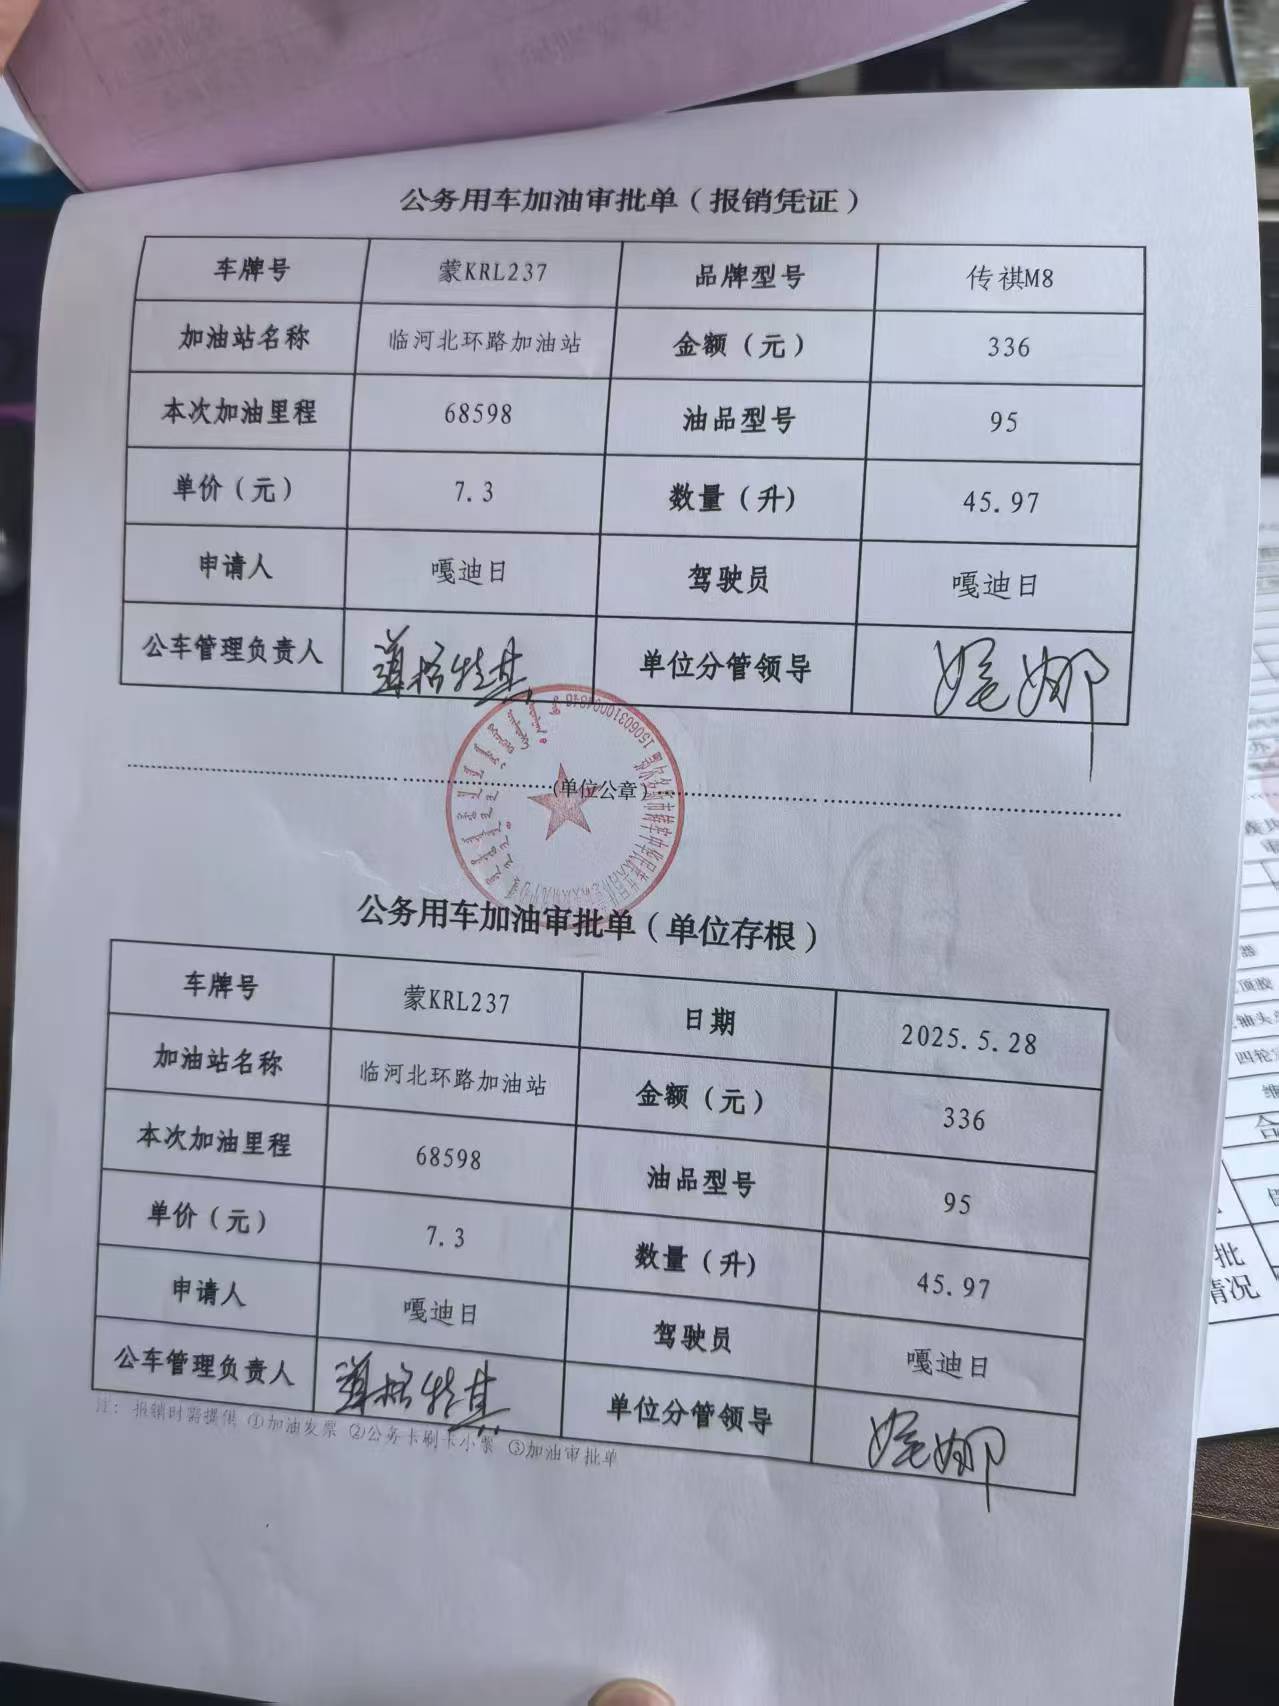 公务用车加油审批单（报销凭证）
车牌号 蒙KRL237 品牌型号 传祺M8
加油站名称 临河北环路加油站 金额（元） 336
本次加油里程 68598 油品型号 95
单价（元） 7.3 数量（升） 45.97
申请人 嘎迪日 驾驶员 嘎迪日
公车管理负责人 单位分管领导 娓娜
（单位公章）
1506031000
公务用车加油审批单（单位存根）
车牌号 蒙KRL237 日期 2025.5.28
加油站名称 临河北环路加油站 金额（元） 336
本次加油里程 68598 油品型号 95
单价（元） 7.3 数量（升） 45.97
申请人 嘎迪日 驾驶员 嘎迪日
公车管理负责人 单位分管领导 娓娜
注：报销时需提供 ①加油发票 ②公务卡刷卡小票 ③加油审批单
器
顶胶
轴头
四轮
维
合
批
情况